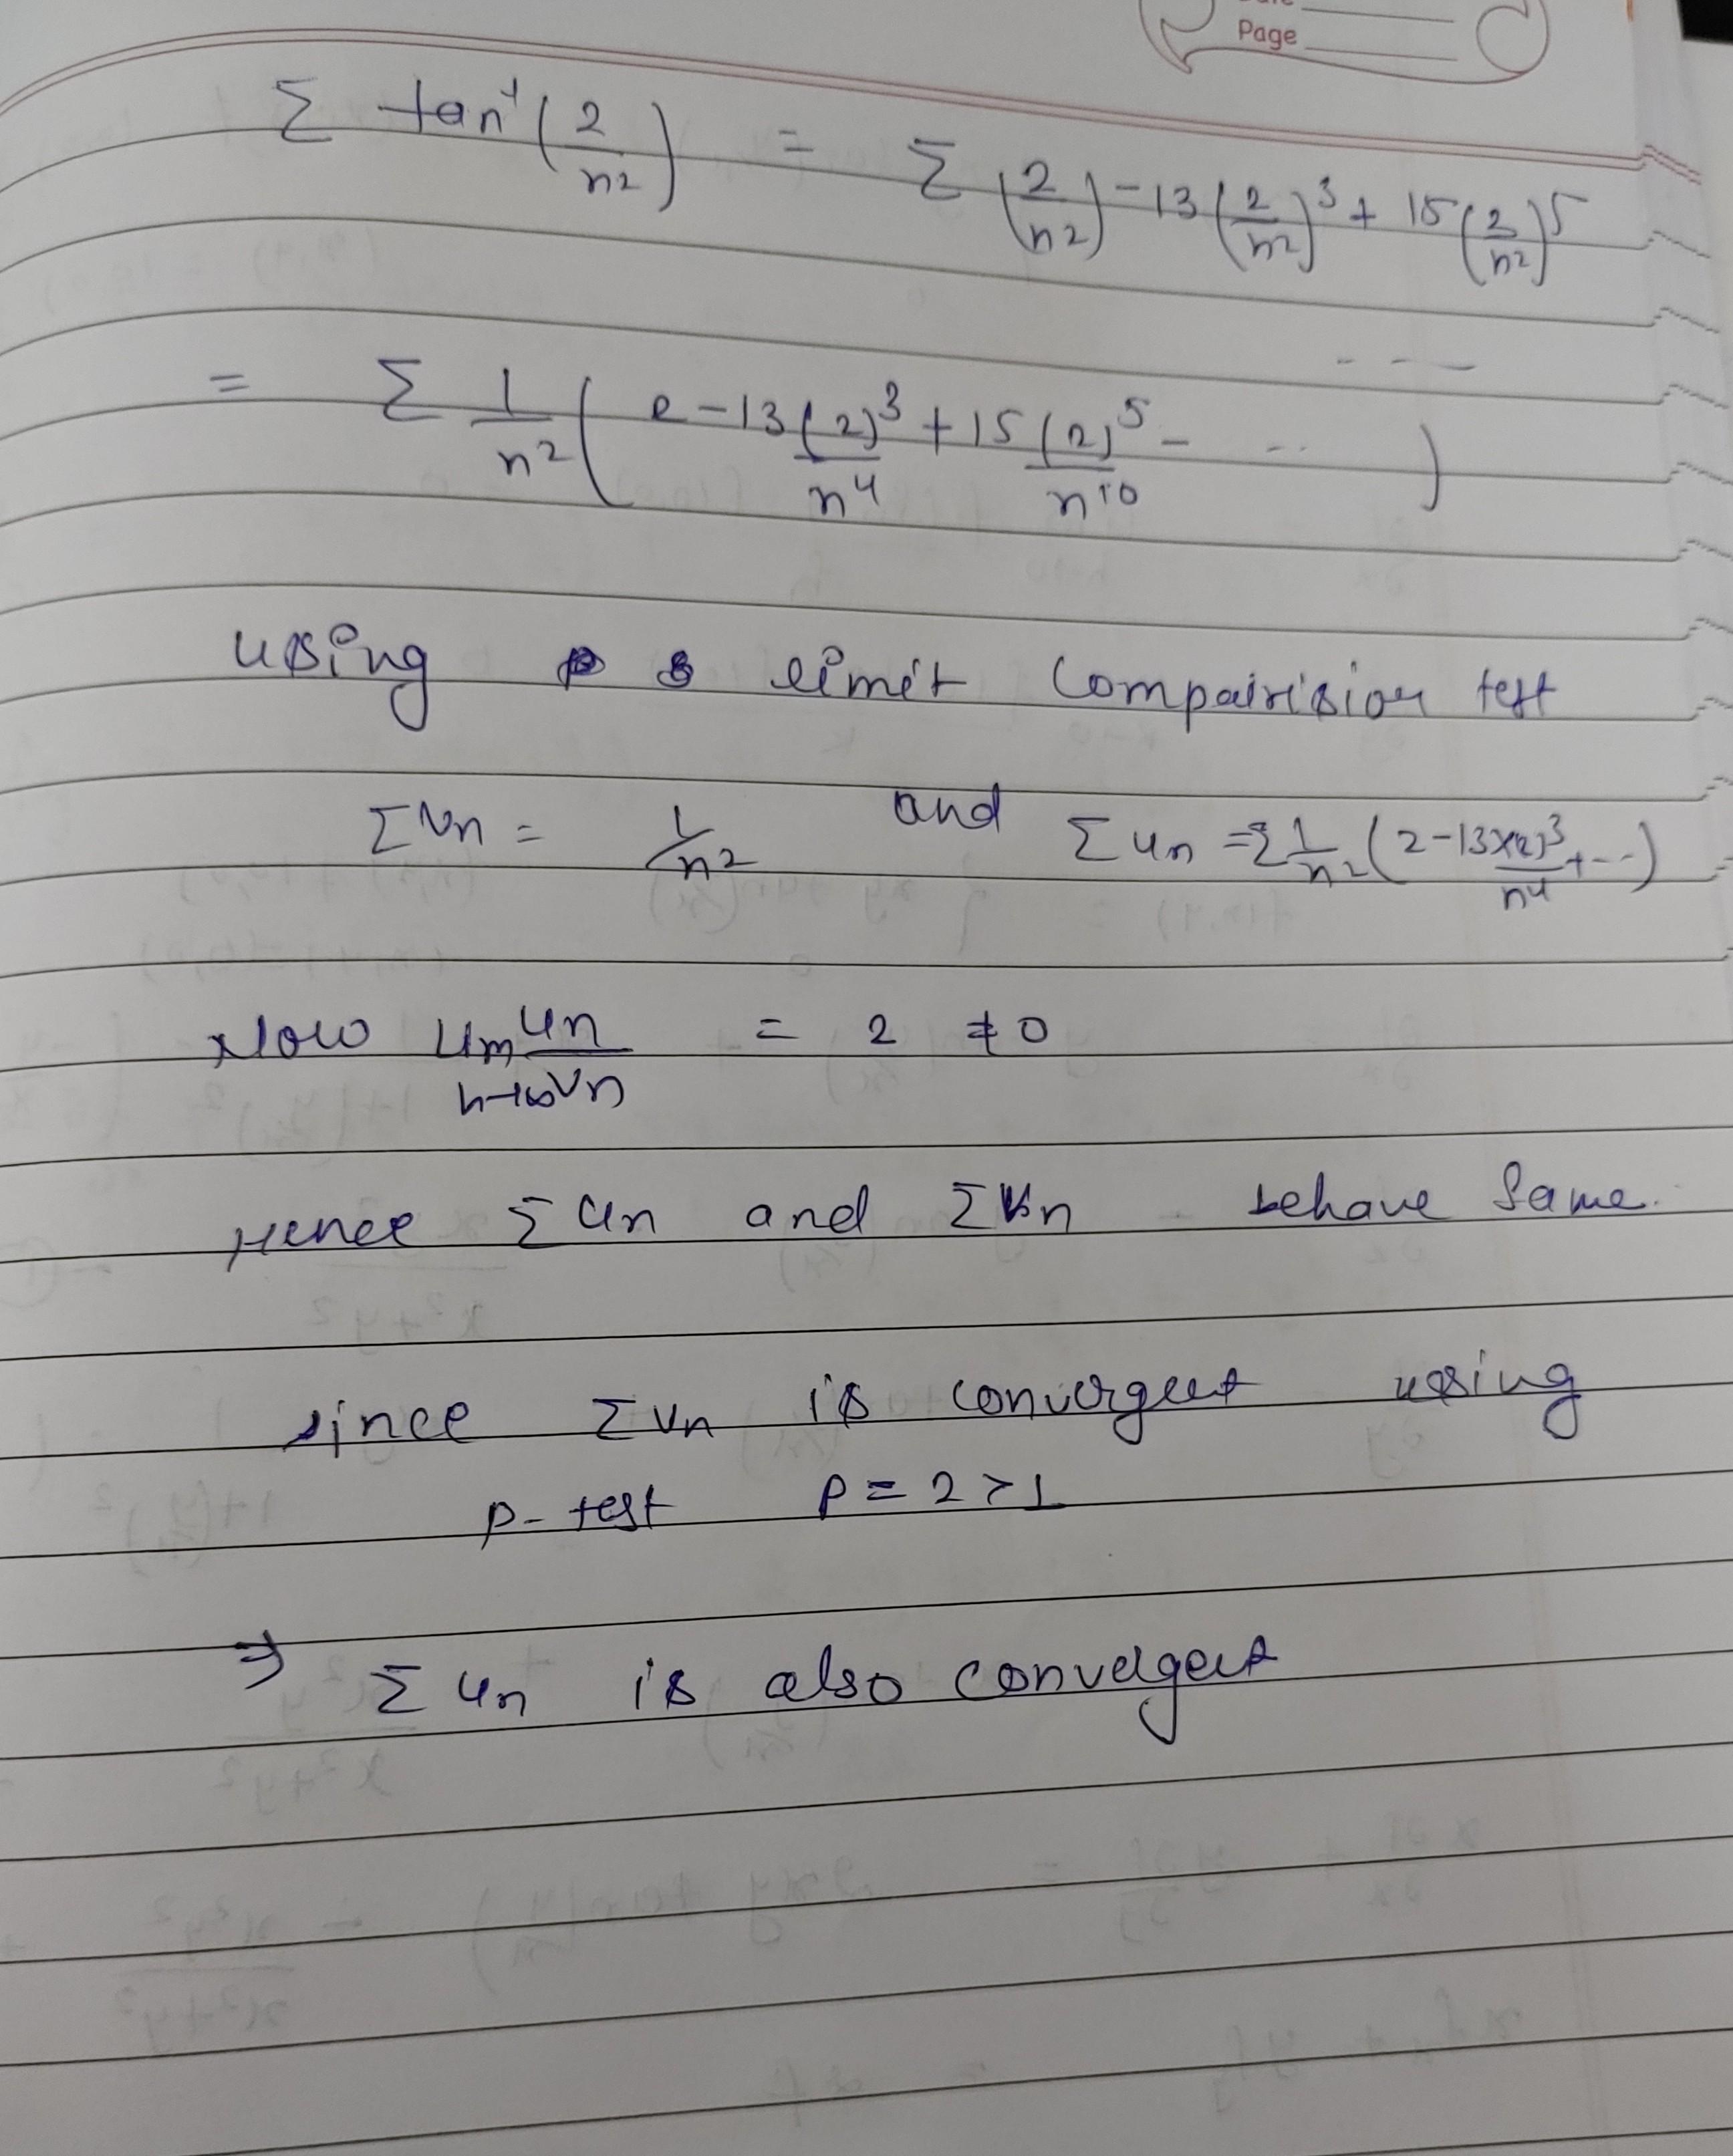 Page
Σ tan⁻¹(2/n²) = Σ (2/n²) - 13(2/n²)³ + 15(2/n²)⁵
----
= Σ 1/n² (2 - 13(2)³/n⁴ + 15(2)⁵/n¹⁰ - ...)
using limit Compairision test
ΣVn = 1/n² and Σun = Σ1/n² (2 - 13×(2)³/n⁴ + --)
Now Lim n→∞ un/vn = 2 ≠ 0
Hence Σun and ΣVn behave same.
since Σvn is convergent using
p-test p = 2 > 1
⇒ Σun is also convergent